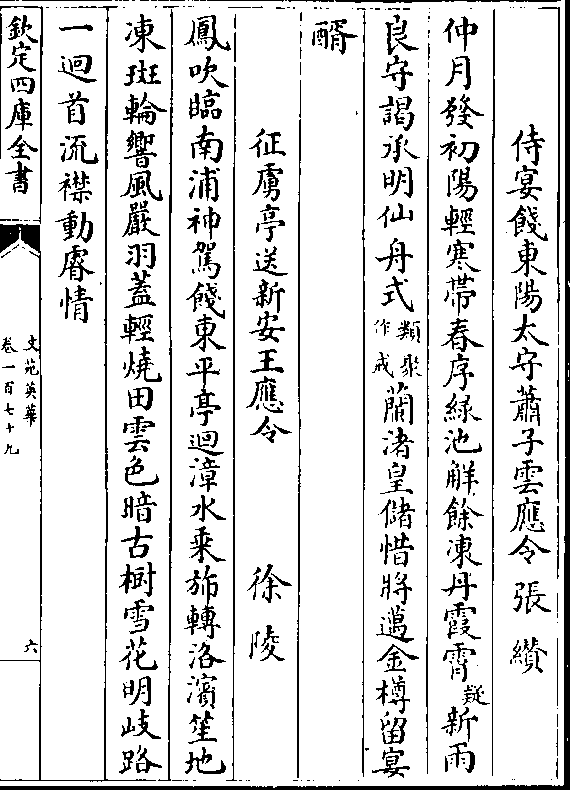 侍宴餞東陽太守蕭子雲應令 張纘
仲月發初陽輕寒帶春序綠池解餘凍丹霞霄疑新雨
良守謁承明仙舟式類聚作戒蘭渚皇儲惜將邁金樽留宴
醑
征虜亭送新安王應令 徐陵
鳳吹臨南浦神駕餞東平亭迴漳水乘斾轉洛濱笙地
凍斑輪響風嚴羽蓋輕燒田雲色暗古樹雪花明歧路
一迴首流襟動睿情
欽定四庫全書
文苑英華
卷一百七十九
六